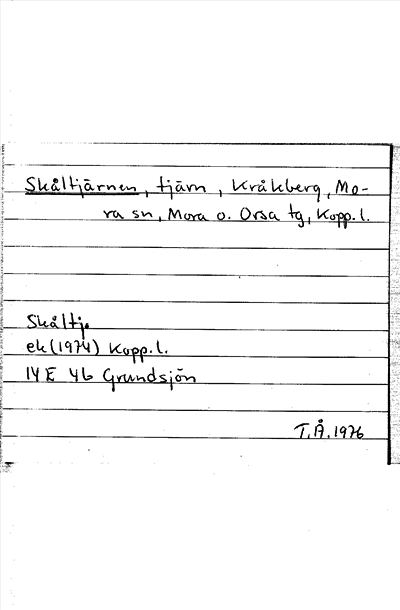 Skåltjärnen, tjärn, Kråkberg, Mo-
ra sn, Mora o. Orsa tg, Kopp.l.
Skåltj.
ek(1974) Kopp.l.
14E 4b Grundsjön
T.Å.1976